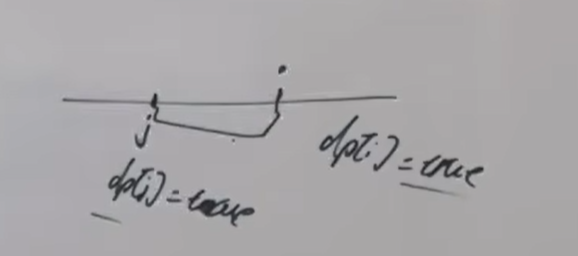 i
j
dp[i] = true
dp[j] = true